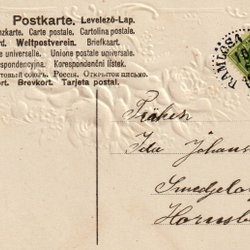 Postkarte. Levelező-Lap.
nzkarte. Carte postale. Cartolina postale
rd. Weltpostverein. Briefkaart.
e universelle. Unione postale universale.
espondenčnj. Korespondenční lístek.
товый союзъ. Россия. Открытое письмо.
ort. Brevkort. Tarjeta postal.
RAMLÖSA
Fröken
Ida Johans
Smedjelog
Hornsb